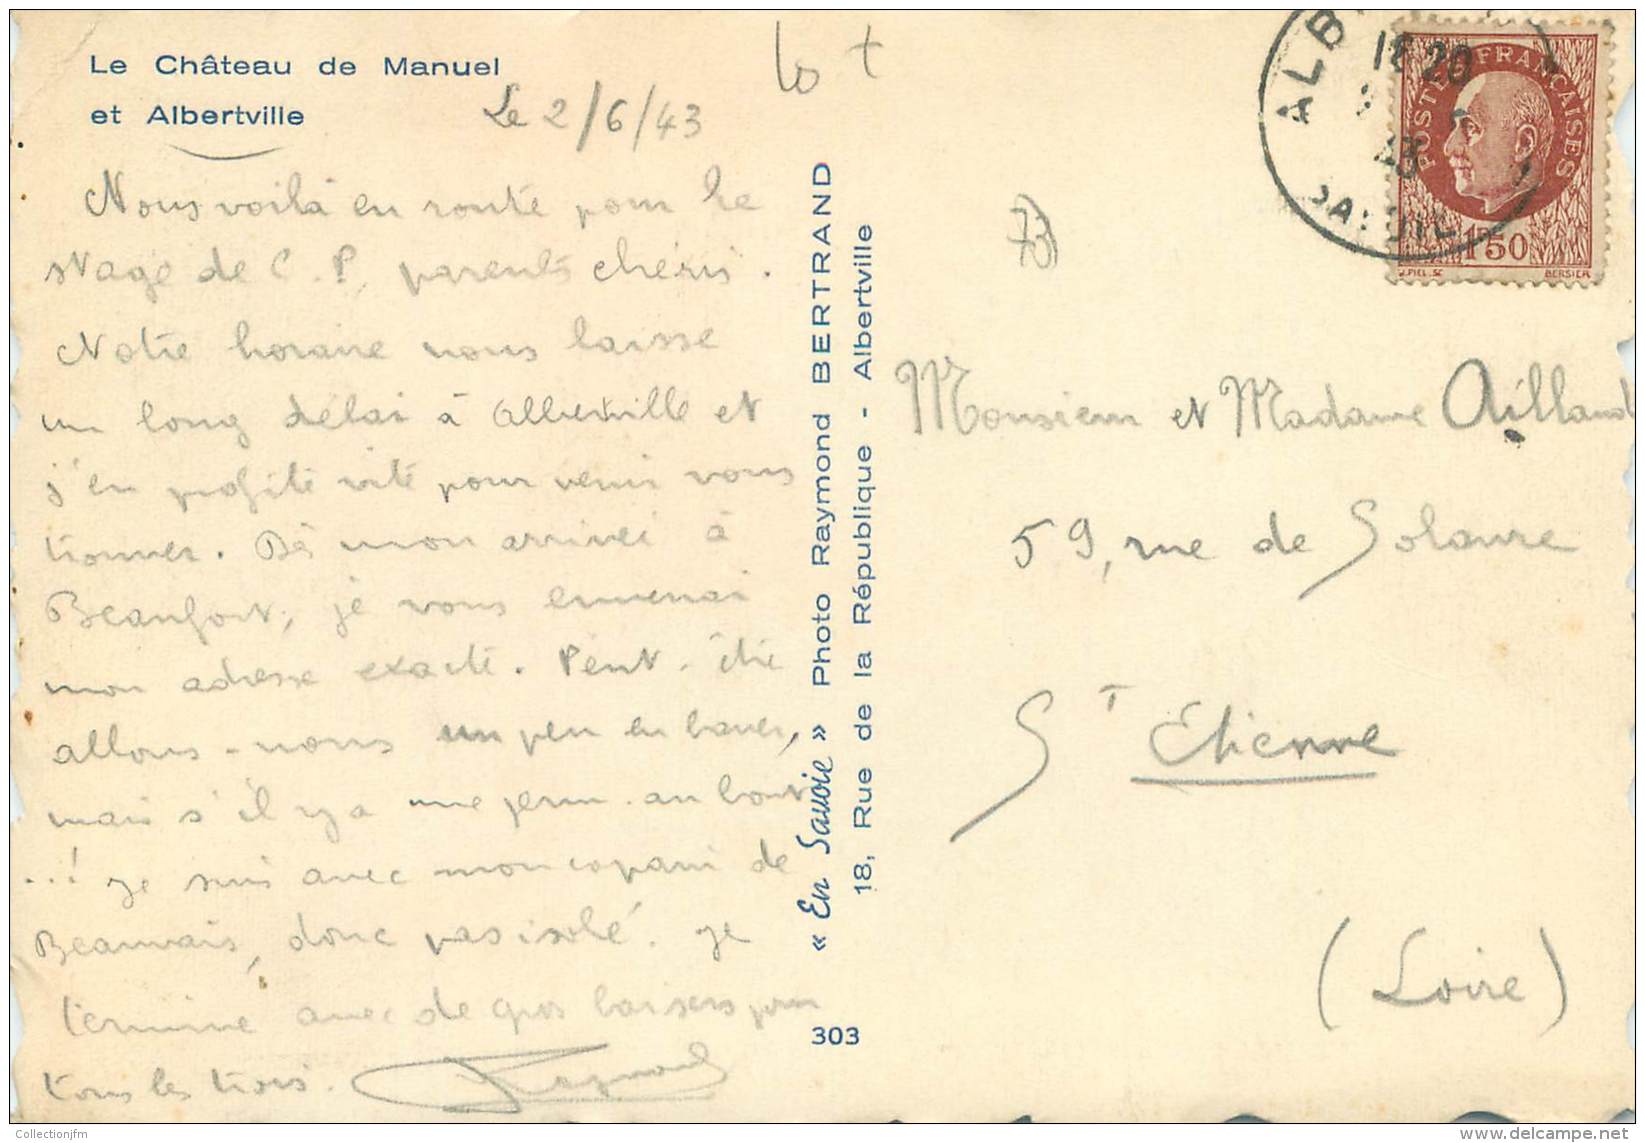 Le Château de Manuel
et Albertville
Le 2/6/43
Nous voilà en route pour le
stage de C.P. parents chéris.
Notre horaire nous laisse
un long délai à Albertville et
j'en profite vite pour venir vous
donner. Dès mon arrivée à
Beaufort, je vous enverrai
mon adresse exacte. Peut-être
allons-nous un peu en baver,
mais s'il y a une perm. au bout
...! Je suis avec mon copain de
Beauvais, donc pas isolé. Je
termine avec de gros baisers pour
tous les trois.
« En Savoie » Photo Raymond BERTRAND
18, Rue de la République - Albertville
303
73
ALB
18 20
43
SAVOIE
POSTES FRANÇAISES
1F50
J.PIEL.SC
BERSIER
Monsieur et Madame Aillaud
59, rue de Solaure
ST Etienne
(Loire)
Collectionjfm
www.delcampe.net